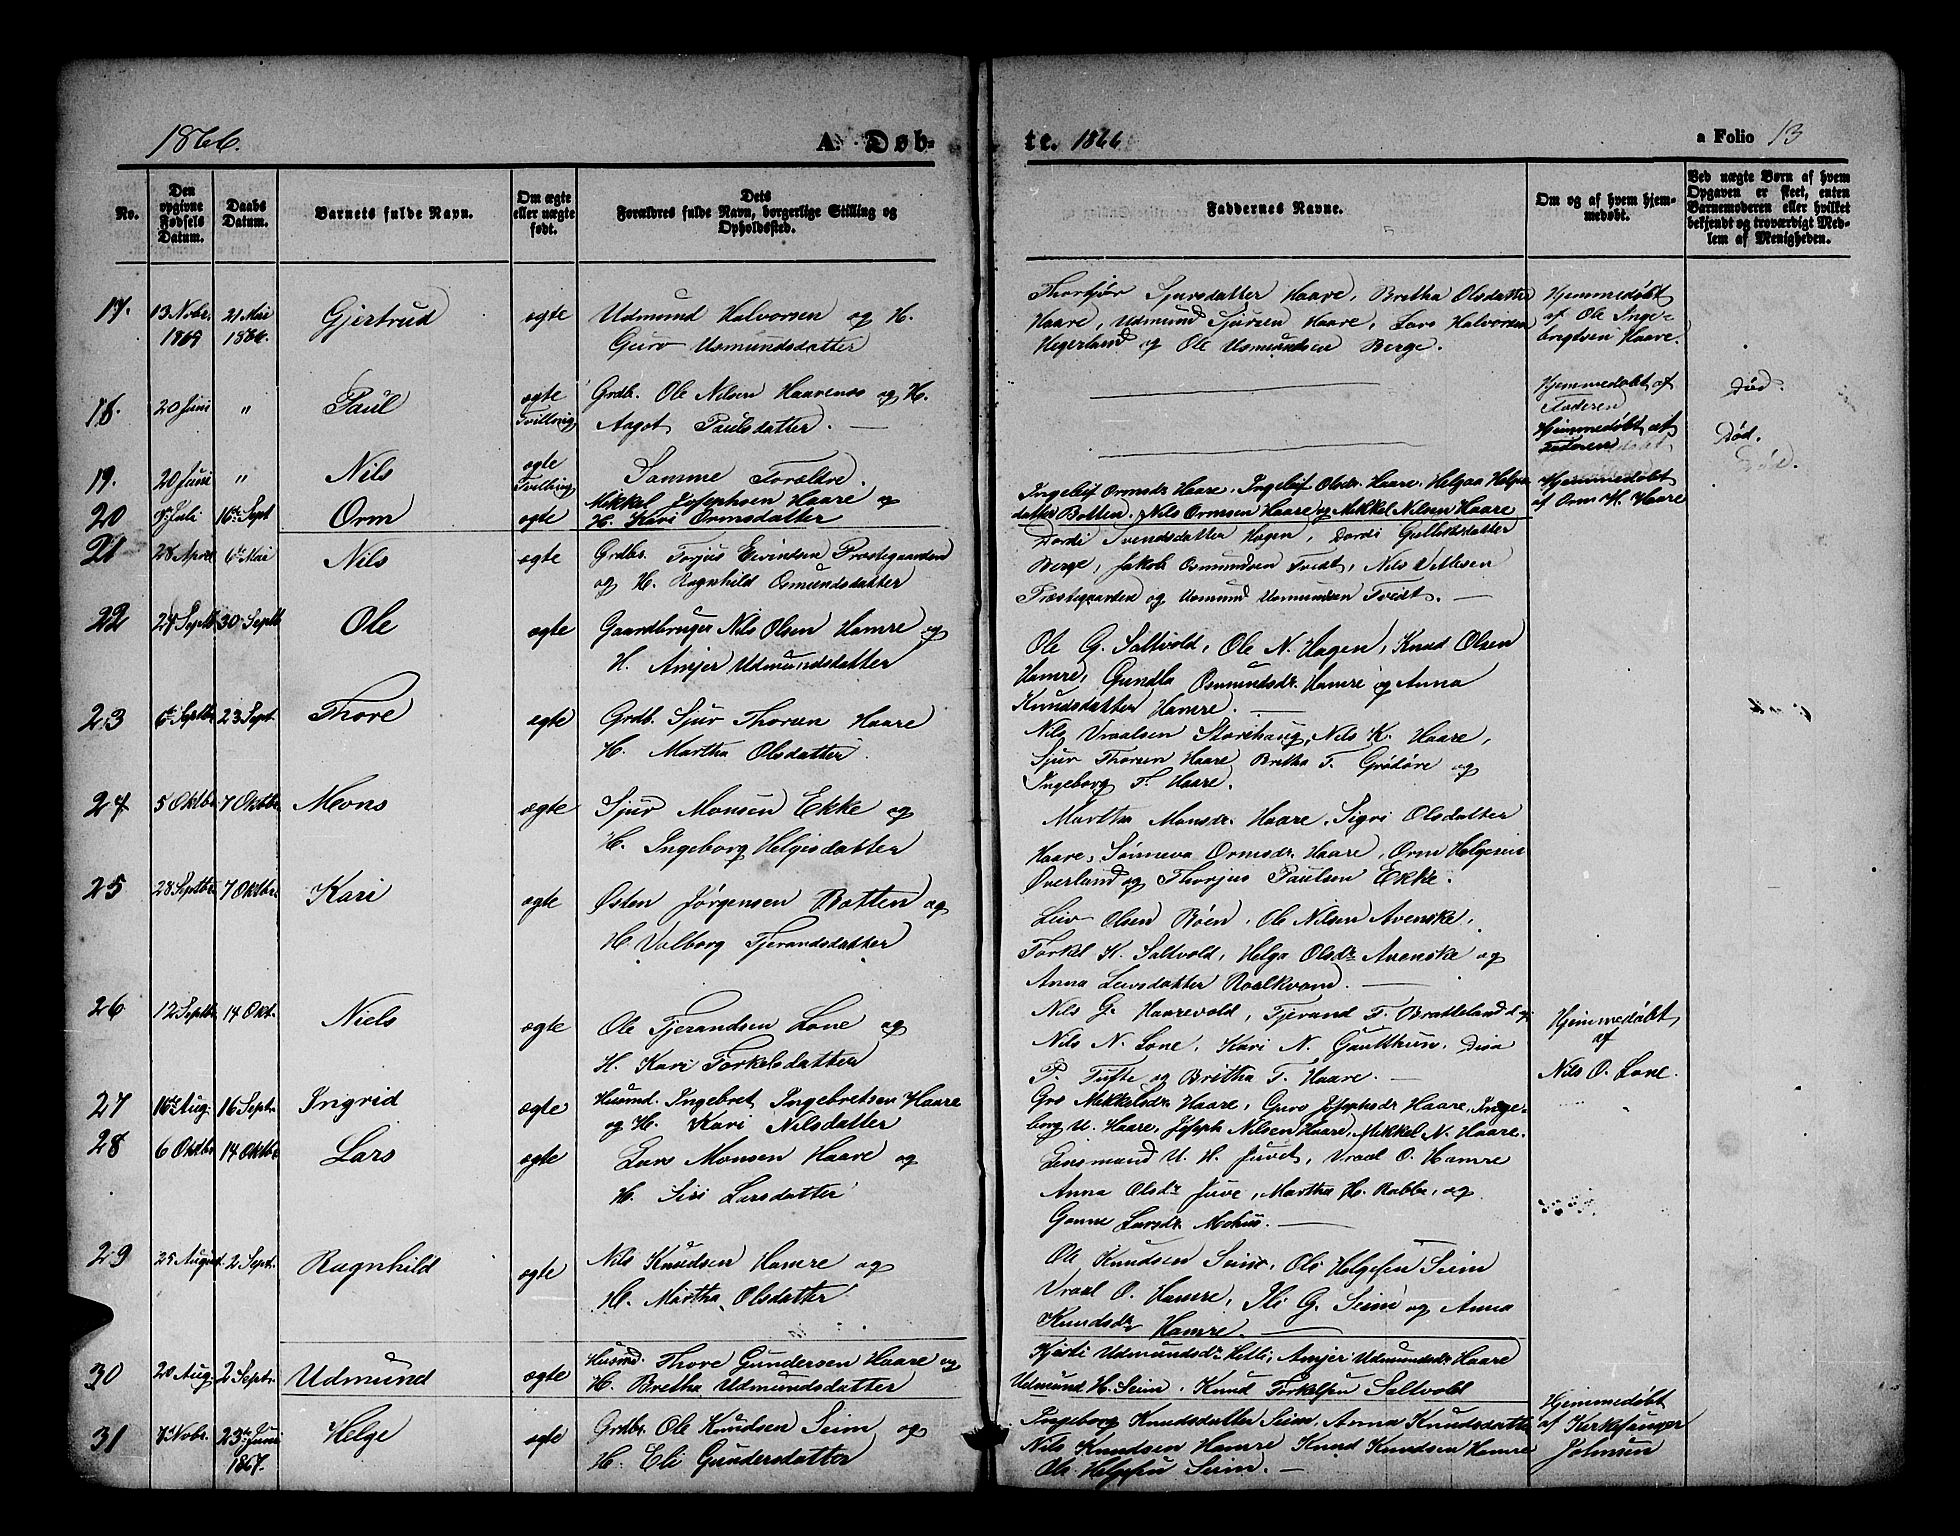 1866.
A. Døb-
te. 1866
a Folio 13
No.
Den opgivne Fødsels Datum.
Daabs Datum.
Barnets fulde Navn.
Om ægte eller uægte født.
Dets Forældres fulde Navn, borgerlige Stilling og Opholdssted.
Faddernes Navne.
Om og af hvem hjemmedøbt.
Ved uægte Børn af hvem Opgaven er skeet, enten Barnemoderen eller hvilket bekjendt og troværdigt Medlem af Menigheden.
17. 13 Novbr. 21 Mai Gjertrud ægte Udmund Halvorsen og H.
1866.
Guro Usmundsdatter
Sjursdatter Haare, Bretha Olsdatter
Haare, Udmund Sjursen Haare, Lars Halvorsen
Hegerland og Ole Usmundsen Berge.
Hjemmedøbt
af Ole Inge-
brigtsen Haare.
18. 20 Juni " Paul ægte Tvilling Grdb. Ole Nilsen Haarenos og H.
Aagot Paulsdatter. —
Hjemmedøbt af
Faderen
Død.
19. 20 Juni " Nils ægte Tvilling Samme Forældre.
Hjemmedøbt af
Faderen
Død.
20 7 Juli 16 Sept Orm ægte Mikkel Josephsen Haare og
H. Kari Ormsdatter
Ingebif Ormsdr. Haare, Ingebif Olsdr. Haare, Helgaa Helges
datter Botten, Nils Ormsen Haare og Mikkel Nilsen Haare
Hjemmedøbt
af Orm H. Haare
21 28 April 6 Mai Nils ægte Grdbr. Torjus Eivindsen Prestegaarden
og H. Ragnhild Osmundsdatter
Dordi Svendsdatter Hagen, Dordi
Berge, Jakob Osmundsen Tvedt, Nils Vetlesen
Præstegaarden og Usmund Usmundsen Tvedt. —
22 24 Septb 30 Septb Ole ægte Gaardbruger Nils Olsen Hamre og
H. Amjer Udmundsdatter
Ole G. Saltvold, Ole N. Hagen, Knud Olsen
Hamre, Gundla Osmundsdr. Hamre og Anna
Knudsdatter Hamre. —
23 6 Septbr 23 Sept. Thore ægte Grdb. Sjur Thorsen Haare
H. Martha Olsdatter.
Nils Vraalsen Storehaug, Nils K. Haare,
Sjur Thorsen Haare, Bretha T. Grødøre og
Ingeborg T. Haare.
24 5 Oktbr 7 Oktbr Mons ægte Sjur Monsen Ekke og
H. Ingeborg Helgesdatter
Martha Monsdr. Haare, Sigri Olsdatter
Haare, Sønneva Ormsdr. Haare, Orm Helgesen
Øverland og Thorjus Paulsen Ekke.
25 28 Septbr 7 Oktbr. Kari ægte Østen Jørgensen Botten og
H. Valborg Tjerandsdatter
Leiv Olsen Bøen, Ole Nilsen Avenske,
Torkel K. Saltvold, Helga Olsdr. Avenske og
Anna Leivsdatter Roalkvam. —
26 12 Septbr 14 Okt. Niels ægte Ole Tjerandsen Lone og
H. Kari Torkelsdatter
Nils G. Haarevold, Tjerand T. Bratteland og
Nils N. Lone, Kari N. Gautthun,
P. Tufte og Britha T. Haare. —
Hjemmedøbt
af
Nils O. Lone.
27 16 Aug. 16 Sept. Ingrid ægte Husmd. Ingebret Ingebretsen Haare
og H. Kari Nilsdatter
Gro Mikkelsdr. Haare, Guro Josephsdr Haare, Inge-
borg U. Haare, Joseph Nilsen Haare, Mikkel N. Haare.
28 6 Oktbr 14 Oktbr Lars ægte Lars Monsen Haare og
H. Siri Larsdatter
Lensmand U. H. Juvet, Vraal O. Hamre
Anna Olsdr Juve, Martha H. Rabbe, og
Gonne Larsdr. Mohus. —
29 25 August 2 Sept. Ragnhild ægte Nils Knudsen Hamre og
H. Martha Olsdatter
Ole Knudsen Seim, Ole Helgesen Seim
Vraal O. Hamre, Eli G. Seim og Anna
Knudsdr Hamre. —
30 20 Aug. 2 Septr. Udmund ægte Husmd. Thore Gundersen Haare og
H. Bretha Udmundsdatter
Udmundsdr. Helle, Amjer Udmundsdr Haare
Udmund H. Seim, Knud Torkelsen Saltvold
31 7 Novbr. 23 Juni Helge ægte Grdbr. Ole Knudsen Seim og
1867.
H. Eli Gundersdatter
Ingeborg Knudsdatter Seim, Anna Knudsdatter
Nils Knudsen Hamre, Knud Knudsen Hamre
Ole Helgesen Seim. —
Hjemmedøbt
af Kirkesanger
Johnsen